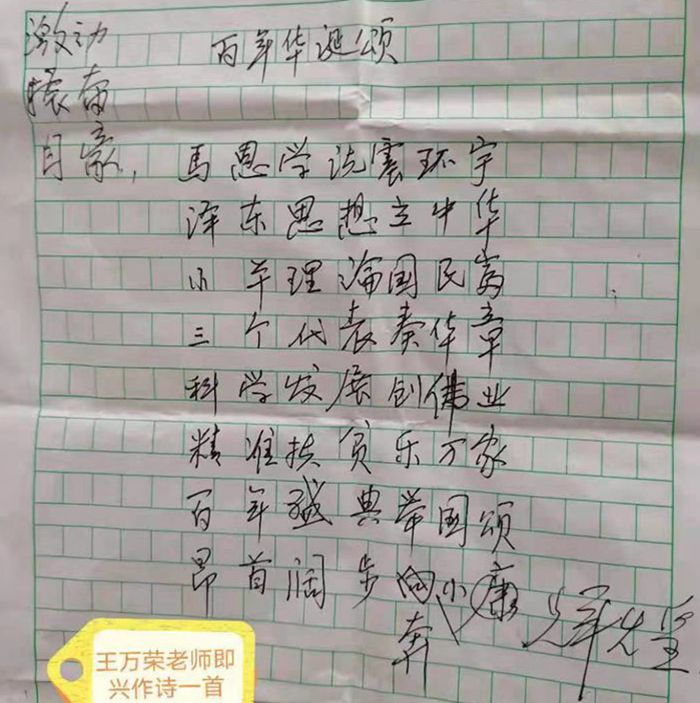 激动
百年华诞颂
振奋
自豪,
马恩学说震环宇
泽东思想立中华
小平理论国民富
三个代表奏华章
科学发展创伟业
精准扶贫乐万家
百年盛典举国颂
昂首阔步向小康
奔
辉
王万荣老师即
兴作诗一首